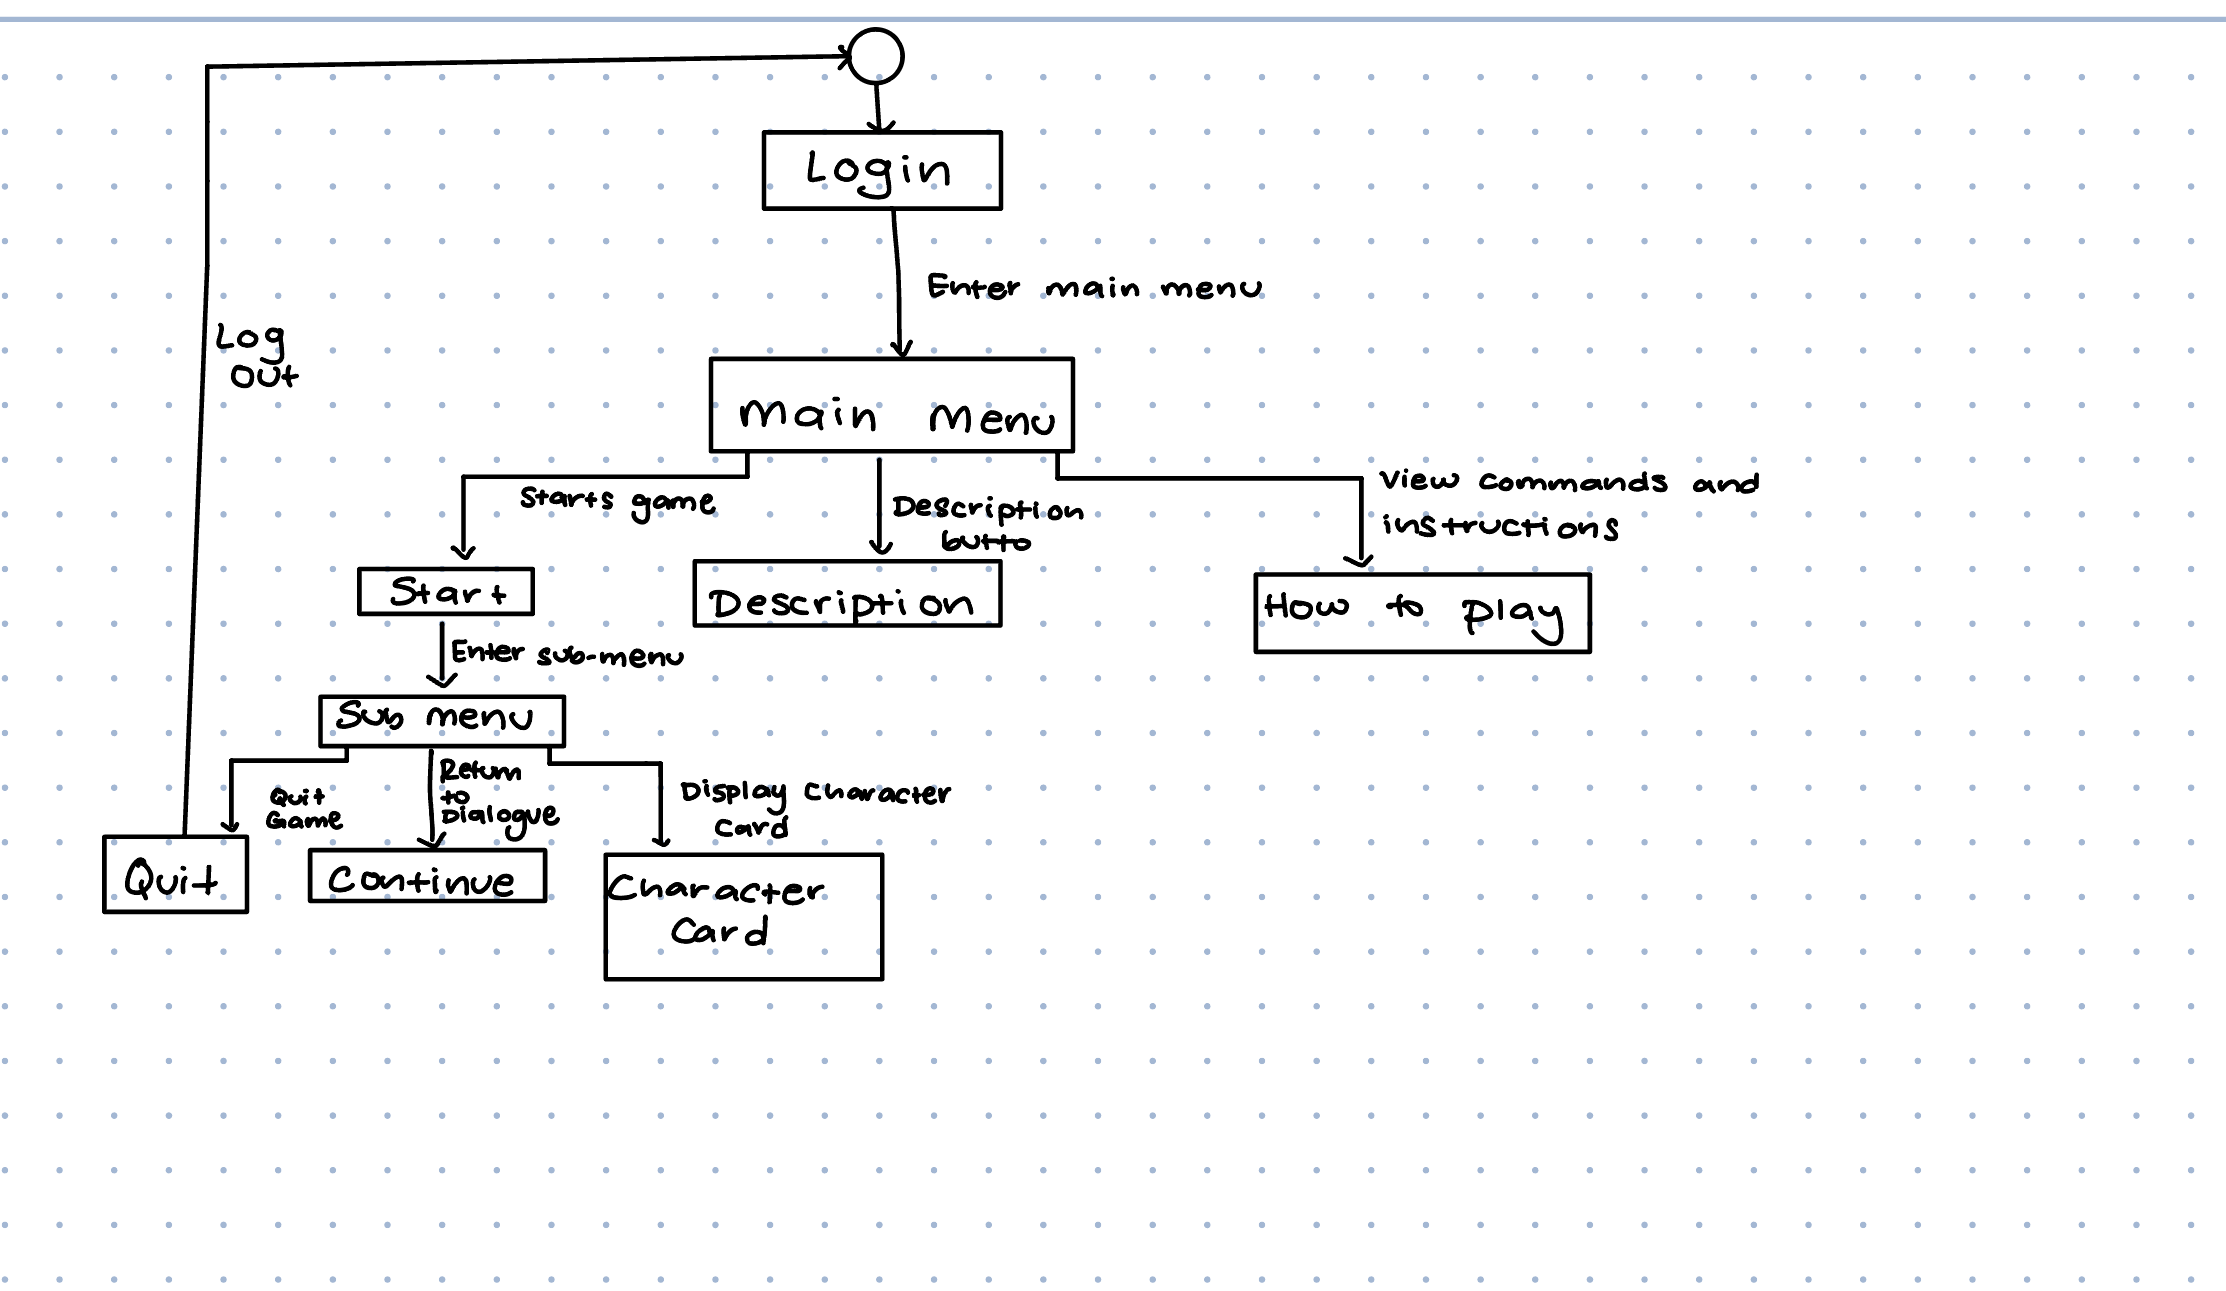 Login
Enter main menu
Log
out
Main Menu
Starts game
Description
butto
View commands and
instructions
Start
Description
How to play
Enter sub-menu
Sub menu
Quit
Game
Return
to
Dialogue
Display Character
Card
Quit
Continue
Character
Card